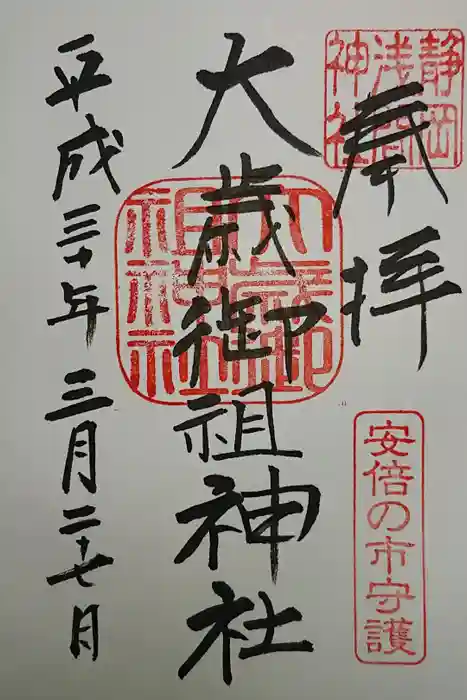 奉拝
静岡浅間神社
安倍の市守護
大歳御祖神社
大歳御祖神社
平成三十年三月二十七日